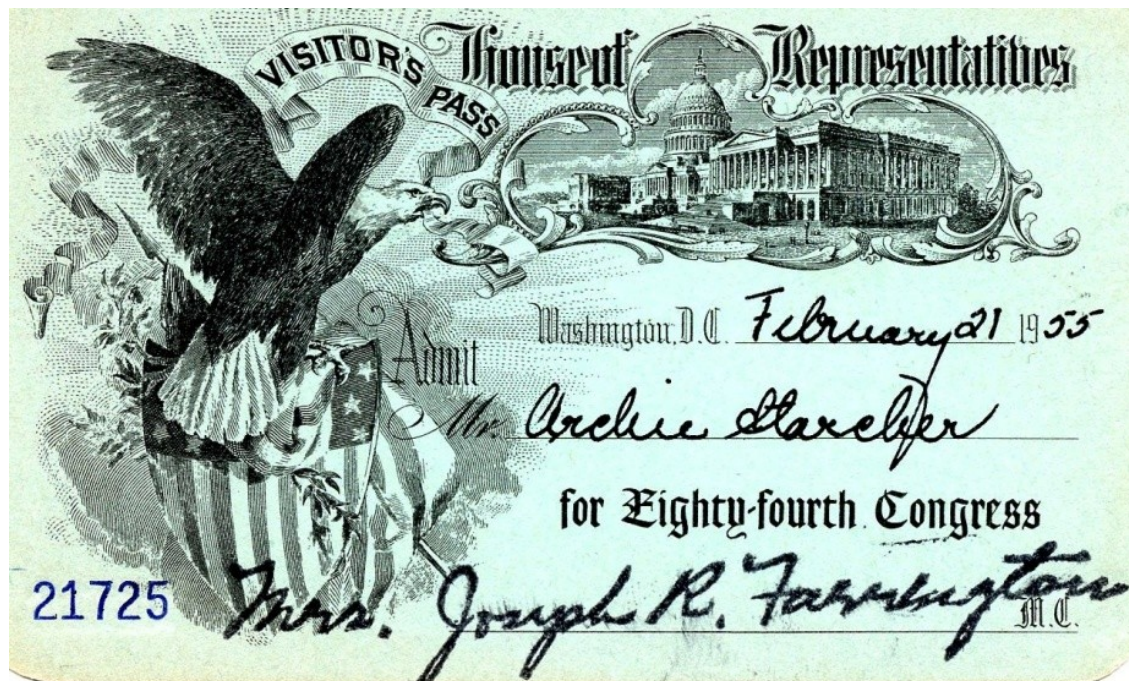 VISITOR'S PASS
House of Representatives
Washington, D.C. February 21 1955
Admit
Mr. Archie Starcher
for Eighty-fourth Congress
21725
Mrs. Joseph R. Farrington
M.C.